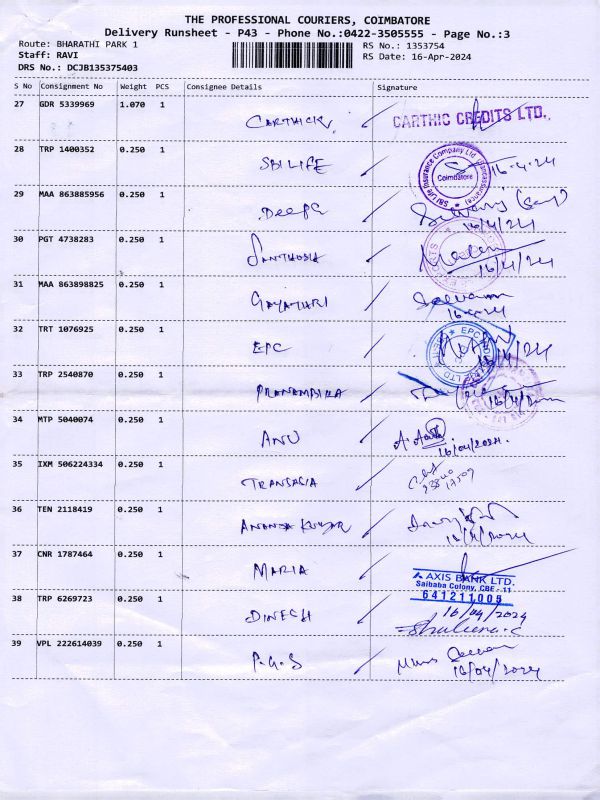 THE PROFESSIONAL COURIERS, COIMBATORE
Delivery Runsheet - P43 - Phone No.:0422-3505555 - Page No.:3
Route: BHARATHI PARK 1 RS No.: 1353754
Staff: RAVI RS Date: 16-Apr-2024
DRS No.: DCJB135375403
S No Consignment No Weight PCS Consignee Details Signature
27 GDR 5339969 1.070 1 CARTHICK CARTHIC CREDITS LTD.
28 TRP 1400352 0.250 1 SBI LIFE SBI Life Insurance Company Ltd Coimbatore 16-4-24
29 MAA 863885956 0.250 1 DEEPA 16/4/24
30 PGT 4738283 0.250 1 SANTHOSH 16/4/24
31 MAA 863898825 0.250 1 GAYATHRI
32 TRT 1076925 0.250 1 EPC EPC 16/4/24
33 TRP 2540870 0.250 1
34 MTP 5040074 0.250 1 ANU 16/04/2024.
35 IXM 506224334 0.250 1 TRANSASIA
36 TEN 2118419 0.250 1 ANANDA KUMAR
37 CNR 1787464 0.250 1 MARIA AXIS BANK LTD.
Saibaba Colony, CBE - 11
641211005
38 TRP 6269723 0.250 1 DINESH 16/04/2024
39 VPL 222614039 0.250 1 P.G.S 16/04/2024